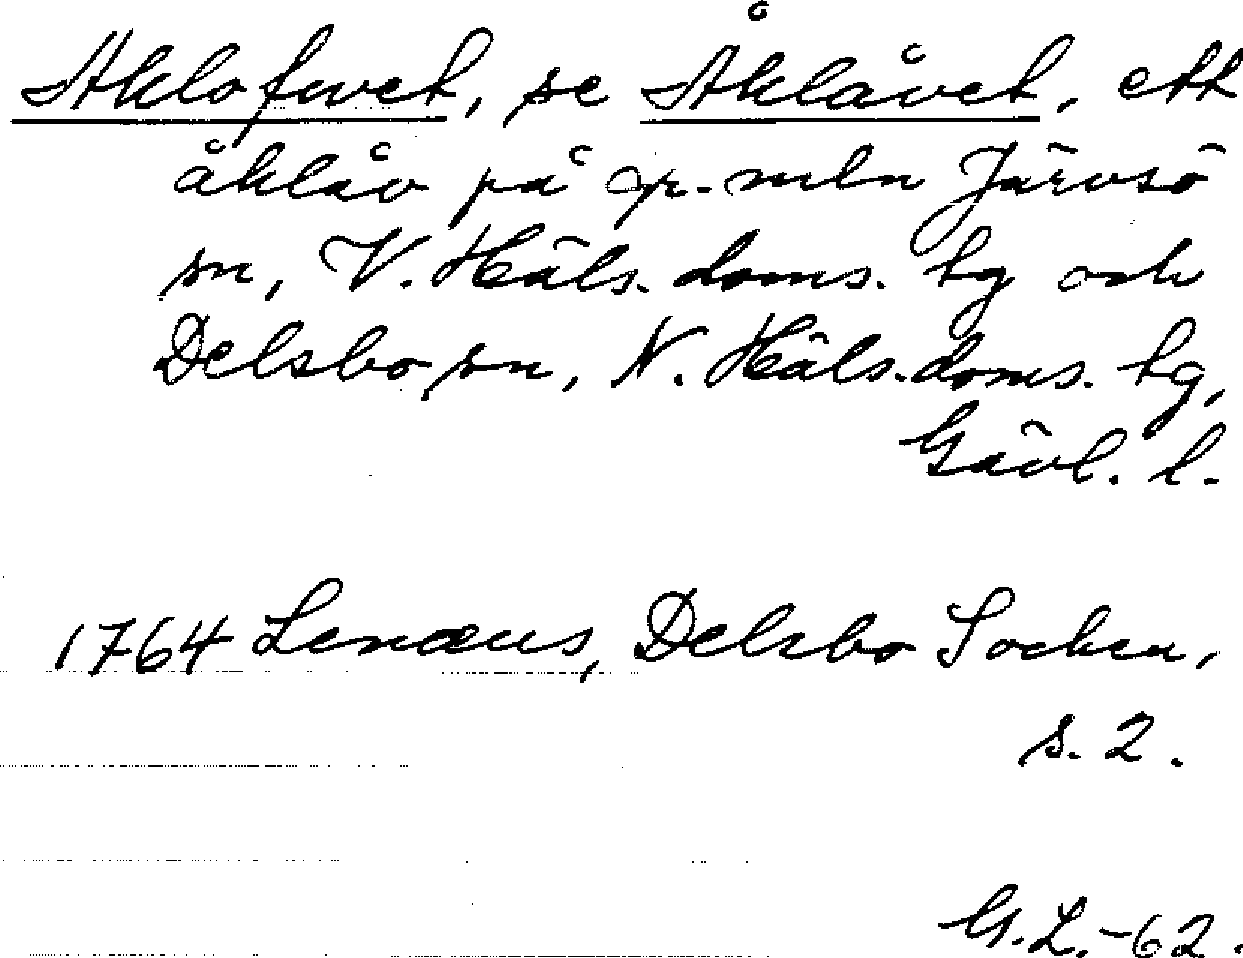 Aklofwet, se Åklåvet, ett
åklåv på gr. mln Järvsö
sn, V. Häls. doms. tg och
Delsbo sn, N. Häls. doms. tg,
Gävl. l.
1764 Lenæus, Delsbo Socken,
s. 2.
G.L.-62.